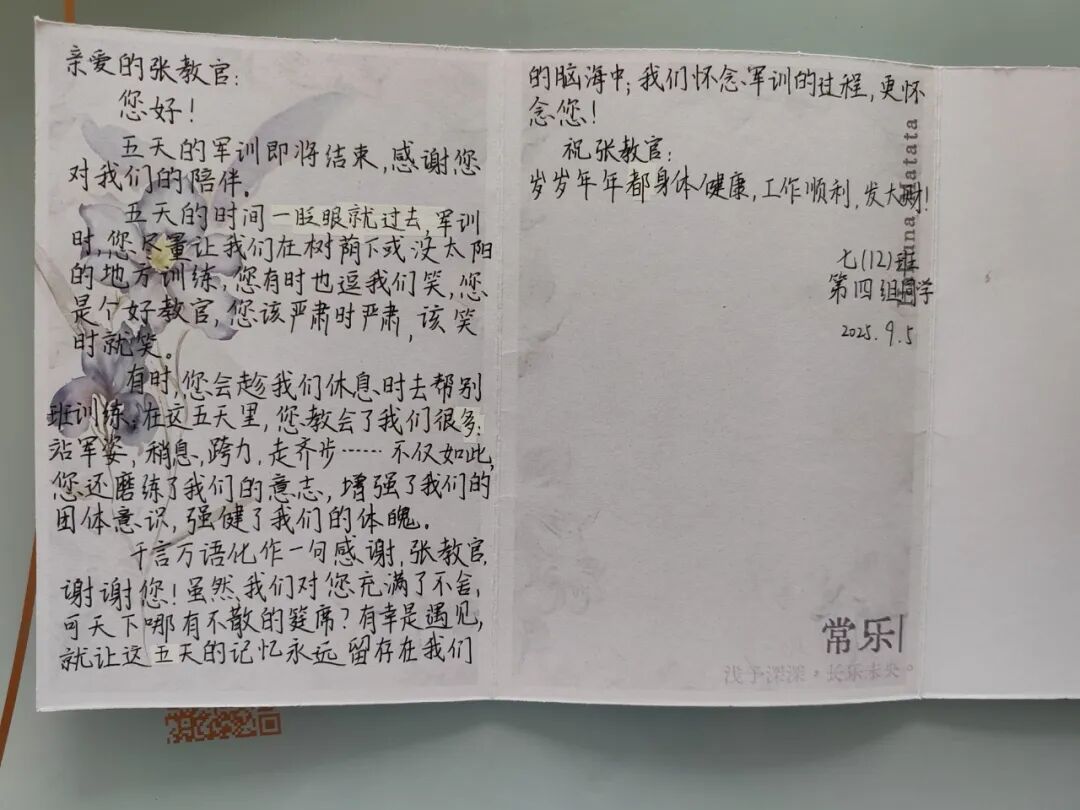 亲爱的张教官:
您好!
五天的军训即将结束,感谢您
对我们的陪伴。
五天的时间一眨眼就过去,军训
时,您尽量让我们在树荫下或没太阳
的地方训练,您有时也逗我们笑,您
是个好教官,您该严肃时严肃,该笑
时就笑。
有时,您会趁我们休息时去帮别
班训练;在这五天里,您教会了我们很多:
站军姿,稍息,跨力,走齐步……不仅如此,
您还磨练了我们的意志,增强了我们的
团体意识,强健了我们的体魄。
千言万语化作一句感谢,张教官,
谢谢您!虽然我们对您充满了不舍,
可天下哪有不散的筵席?有幸是遇见,
就让这五天的记忆永远留存在我们
的脑海中;我们怀念军训的过程,更怀
念您!
祝张教官:
岁岁年年都身体健康,工作顺利,发大财!
七(12)班
第四组同学
2025.9.5
常乐
浅予深深,长乐未央。